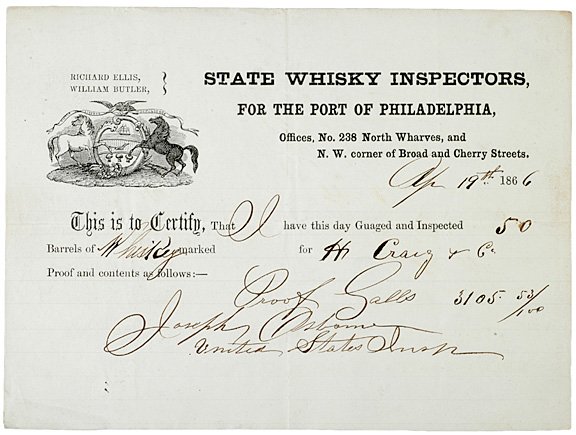 RICHARD ELLIS,
WILLIAM BUTLER,
STATE WHISKY INSPECTORS,
FOR THE PORT OF PHILADELPHIA,
Offices, No. 238 North Wharves, and
N. W. corner of Broad and Cherry Streets.
Ap 19th 1866
This is to Certify, That I have this day Guaged and Inspected 50
Barrels of Whiskey marked for H Craig & Co
Proof and contents as follows:—
Proof Galls 3105 53/100
Joseph Osborne
United States Insp